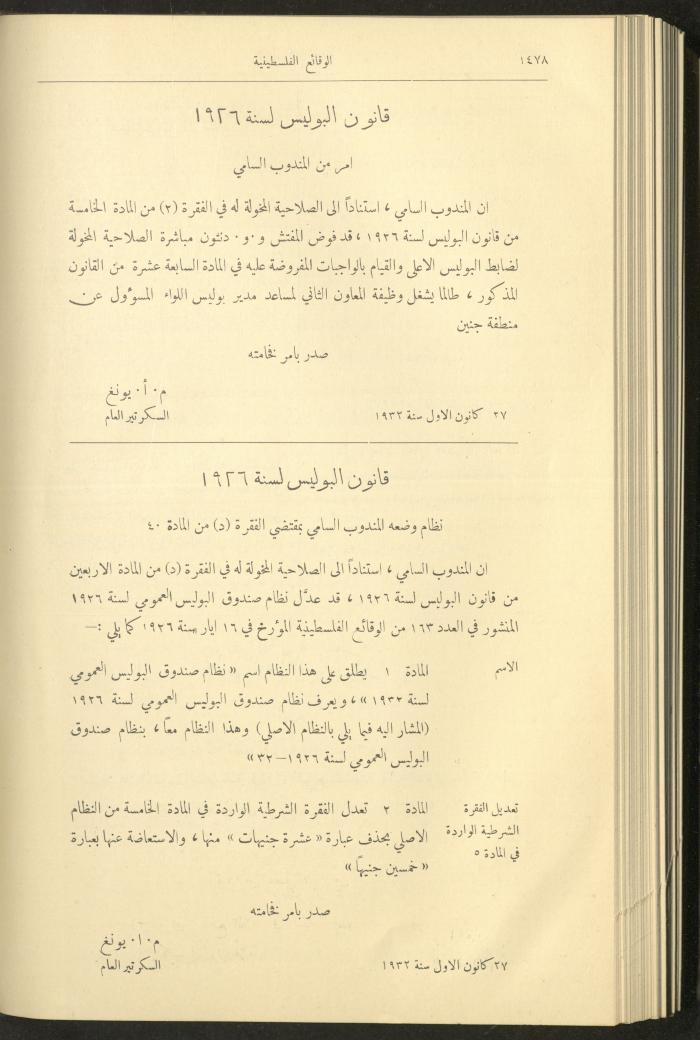 ١٤٧٨ الوقائع الفلسطينية
قانون البوليس لسنة ١٩٢٦
امر من المندوب السامي
ان المندوب السامي ، استناداً الى الصلاحية المخولة له في الفقرة (٢) من المادة الخامسة
من قانون البوليس لسنة ١٩٢٦ ، قد فوض المفتش و٠و٠ دنتون مباشرة الصلاحية المخولة
لضابط البوليس الاعلى والقيام بالواجبات المفروضة عليه في المادة السابعة عشرة من القانون
المذكور ، طالما يشغل وظيفة المعاون الثاني لمساعد مدير بوليس اللواء المسؤول عن
منطقة جنين
صدر بامر فخامته
م٠ أ٠ يونغ
٢٧ كانون الاول سنة ١٩٣٢ السكرتير العام
قانون البوليس لسنة ١٩٢٦
نظام وضعه المندوب السامي بمقتضي الفقرة (د) من المادة ٤٠
ان المندوب السامي ، استناداً الى الصلاحية المخولة له في الفقرة (د) من المادة الاربعين
من قانون البوليس لسنة ١٩٢٦ ، قد عدَّل نظام صندوق البوليس العمومي لسنة ١٩٢٦
المنشور في العدد ١٦٣ من الوقائع الفلسطينية المؤرخ في ١٦ ايار سنة ١٩٢٦ كما يلي :—
الاسم
المادة ١ يطلق على هذا النظام اسم « نظام صندوق البوليس العمومي
لسنة ١٩٣٢ » ، ويعرف نظام صندوق البوليس العمومي لسنة ١٩٢٦
(المشار اليه فيما يلي بالنظام الاصلي) وهذا النظام معاً ، بنظام صندوق
البوليس العمومي لسنة ١٩٢٦–٣٢ »
تعديل الفقرة
الشرطية الواردة
في المادة ٥
المادة ٢ تعدل الفقرة الشرطية الواردة في المادة الخامسة من النظام
الاصلي بحذف عبارة « عشرة جنيهات » منها ، والاستعاضة عنها بعبارة
« خمسين جنيهاً »
صدر بامر فخامته
م٠ ا٠ يونغ
٢٧ كانون الاول سنة ١٩٣٢ السكرتير العام